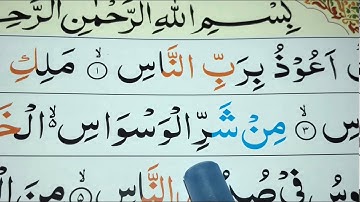 بِسْمِ اللهِ الرَّحْمٰنِ الرَّحِ
اَعُوْذُ بِرَبِّ النَّاسِ ۙ۝۱ مَلِكِ
سِ ۙ۝۳ مِنْ شَرِّ الْوَسْوَاسِ ۙ۬ الْخَ
وِسُ فِيْ صُدُ النَّاسِ ۙ۝۵ مِنَ الْ